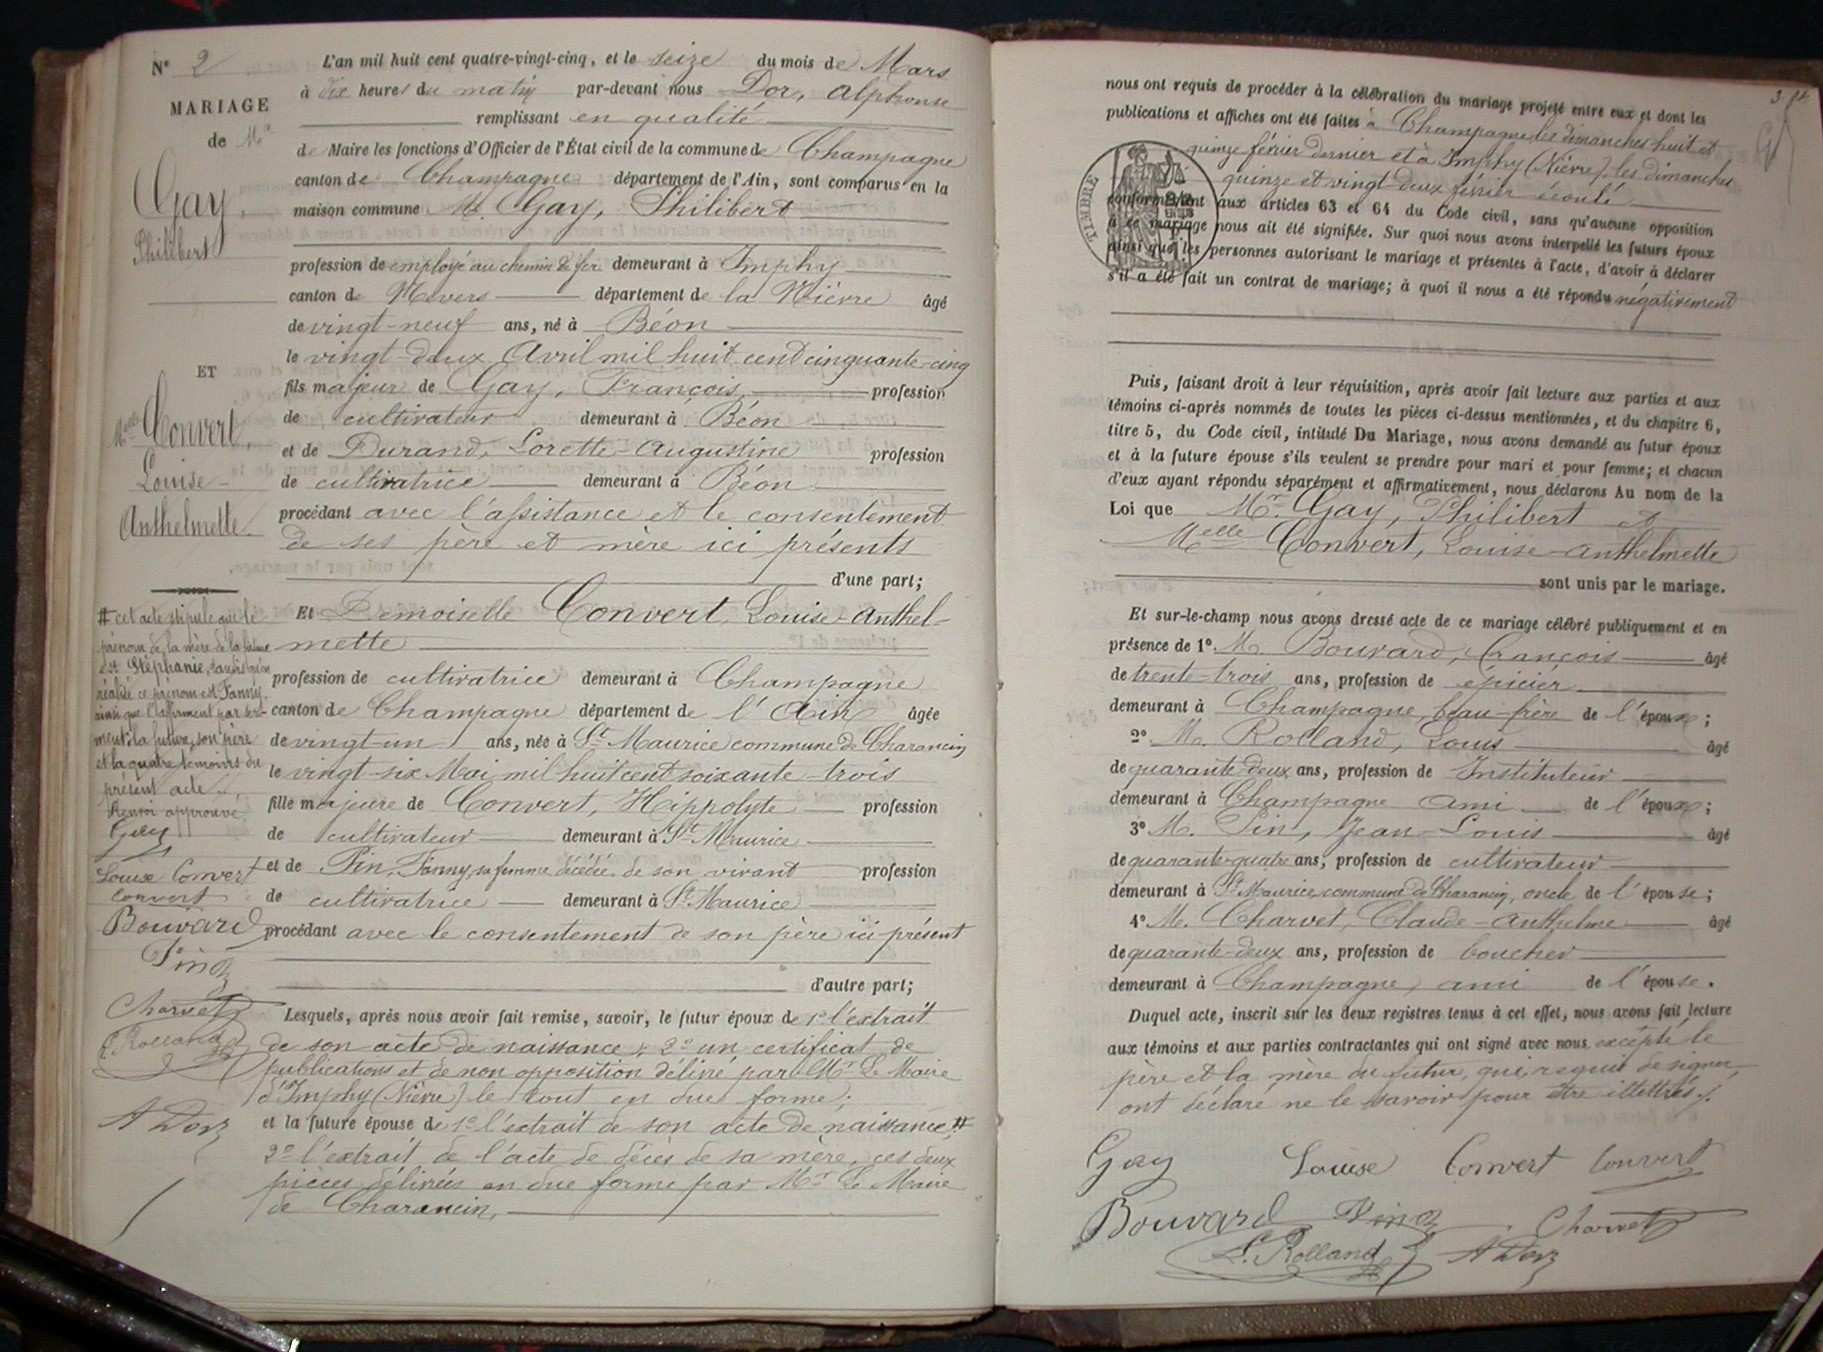 N° 2
MARIAGE
de Mr
Gay,
Philibert
ET
Melle Convert,
Louise-
Anthelmette.
# cet acte stipule que le
prénom de la mère de la future
est Stéphanie, tandis qu'en
réalité ce prénom est Fanny
ainsi que l'affirment par ser-
ment: la future, son père
et les quatre témoins du
présent acte ./.
Renvoi approuvé
Gay
Louise Convert
Convert
Bouvard
Pin
Charvet
L. Rolland
A Dor
L'an mil huit cent quatre-vingt-cinq, et le seize du mois de Mars
à dix heures du matin par-devant nous Dor, Alphonse
remplissant en qualité
de Maire les fonctions d'Officier de l'État civil de la commune de Champagne
canton de Champagne département de l'Ain, sont comparus en la
maison commune M. Gay, Philibert
profession de employé au chemin de fer demeurant à Imphy
canton de Nevers département de la Nièvre âgé
de vingt-neuf ans, né à Béon
le vingt-deux Avril mil huit cent cinquante-cinq
fils majeur de Gay, François, profession
de cultivateur demeurant à Béon
et de Durand, Lorette-Augustine profession
de cultivatrice demeurant à Béon
procédant avec l'assistance et le consentement
de ses père et mère ici présents
d'une part;
Et Demoiselle Convert, Louise-Anthel-
mette
profession de cultivatrice demeurant à Champagne
canton de Champagne département de l'Ain âgée
de vingt-un ans, née à St Maurice commune de Charancin
le vingt-six Mai mil huit cent soixante-trois
fille majeure de Convert, Hippolyte profession
de cultivateur demeurant à St Maurice
et de Pin, Fanny, sa femme décédée de son vivant profession
de cultivatrice demeurant à St Maurice
procédant avec le consentement de son père ici présent
d'autre part;
Lesquels, après nous avoir fait remise, savoir, le futur époux de 1° l'extrait
de son acte de naissance; 2° un certificat de
publications et de non opposition délivré par Mr Le Maire
d'Imphy (Nièvre) le tout en due forme;
et la future épouse de 1° l'extrait de son acte de naissance, #
2° l'extrait de l'acte de décès de sa mère, ces deux
pièces délivrées en due forme par Mr Le Maire
de Charancin,
nous ont requis de procéder à la célébration du mariage projeté entre eux et dont les
publications et affiches ont été faites à Champagne les dimanches huit et
quinze février dernier et à Imphy (Nièvre), les dimanches
quinze et vingt-deux février écoulé
TIMBRE
conformément aux articles 63 et 64 du Code civil, sans qu'aucune opposition
à ce mariage nous ait été signifiée. Sur quoi nous avons interpellé les futurs époux
ainsi que les personnes autorisant le mariage et présentes à l'acte, d'avoir à déclarer
s'il a été fait un contrat de mariage; à quoi il nous a été répondu négativement
Puis, faisant droit à leur réquisition, après avoir fait lecture aux parties et aux
témoins ci-après nommés de toutes les pièces ci-dessus mentionnées, et du chapitre 6,
titre 5, du Code civil, intitulé Du Mariage, nous avons demandé au futur époux
et à la future épouse s'ils veulent se prendre pour mari et pour femme; et chacun
d'eux ayant répondu séparément et affirmativement, nous déclarons Au nom de la
Loi que Mr Gay, Philibert et
Melle Convert, Louise-Anthelmette
sont unis par le mariage.
Et sur-le-champ nous avons dressé acte de ce mariage célébré publiquement et en
présence de 1°. M. Bouvard, François âgé
de trente-trois ans, profession de épicier
demeurant à Champagne, beau-frère de l'épouse;
2° M. Rolland, Louis âgé
de quarante-deux ans, profession de Instituteur
demeurant à Champagne ami de l'épouse;
3° M. Pin, Jean-Louis âgé
de quarante-quatre ans, profession de cultivateur
demeurant à St Maurice, commune de Charancin, oncle de l'épouse;
4° M. Charvet, Claude-Anthelme âgé
de quarante-deux ans, profession de boucher
demeurant à Champagne, ami de l'épouse.
Duquel acte, inscrit sur les deux registres tenus à cet effet, nous avons fait lecture
aux témoins et aux parties contractantes qui ont signé avec nous excepté le
père et la mère du futur, qui, requis de signer,
ont déclaré ne le savoir pour être illettrés ./.
Gay Louise Convert Convert
Bouvard Pin Charvet
L. Rolland A Dor